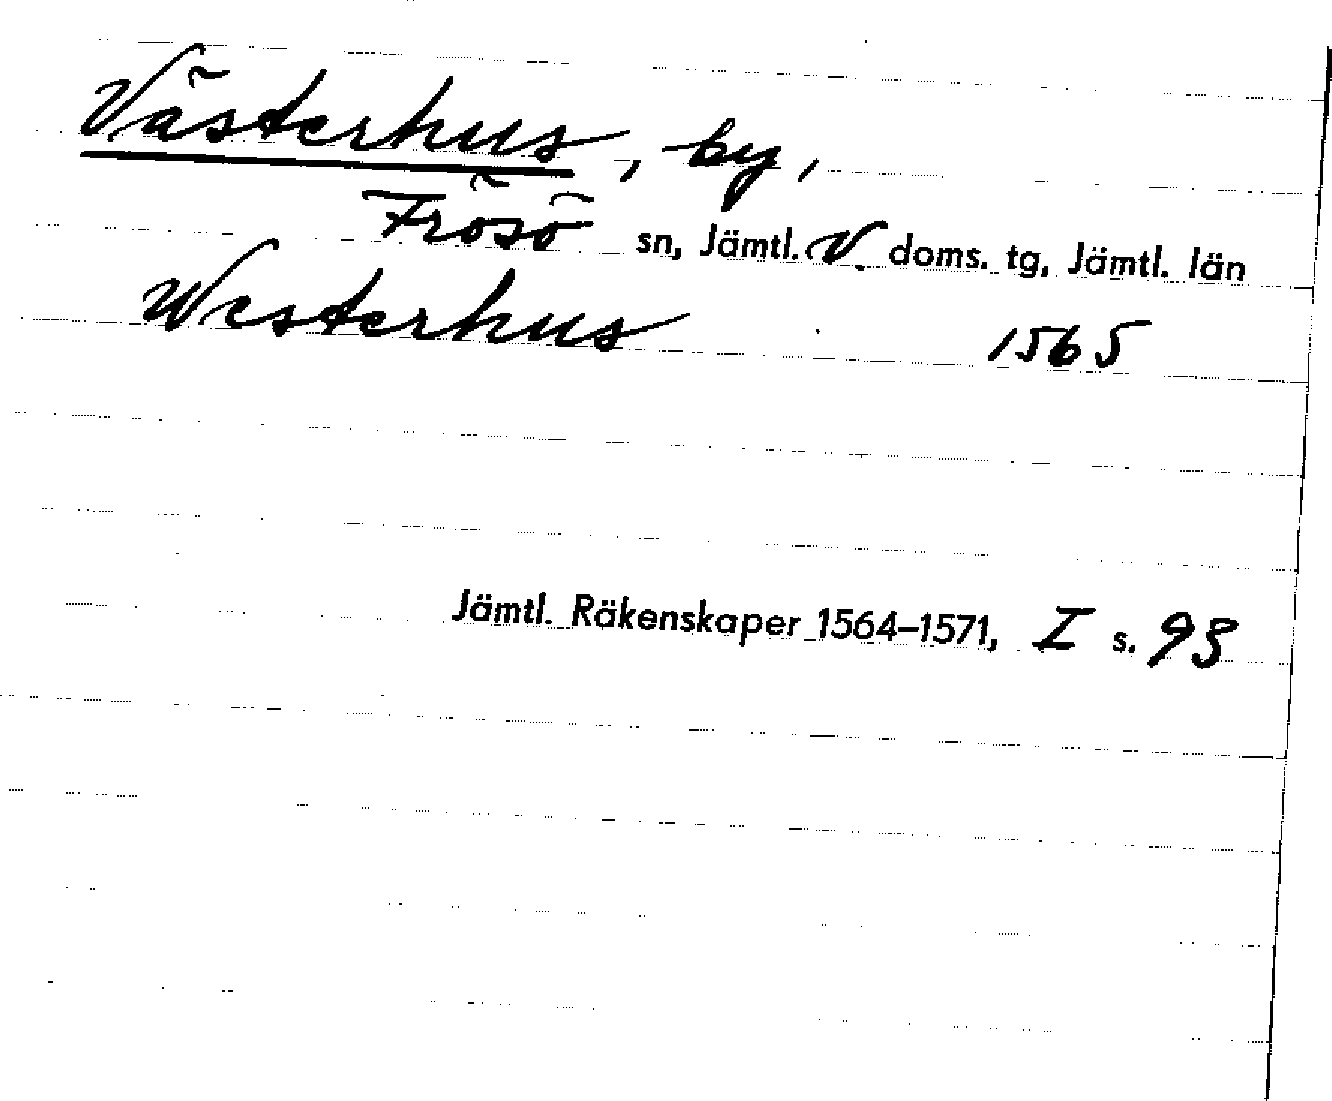 Västerhus, by,
Frösö sn, Jämtl. V. doms. tg, Jämtl. län
Westerhus 1565
Jämtl. Räkenskaper 1564–1571, I s. 93